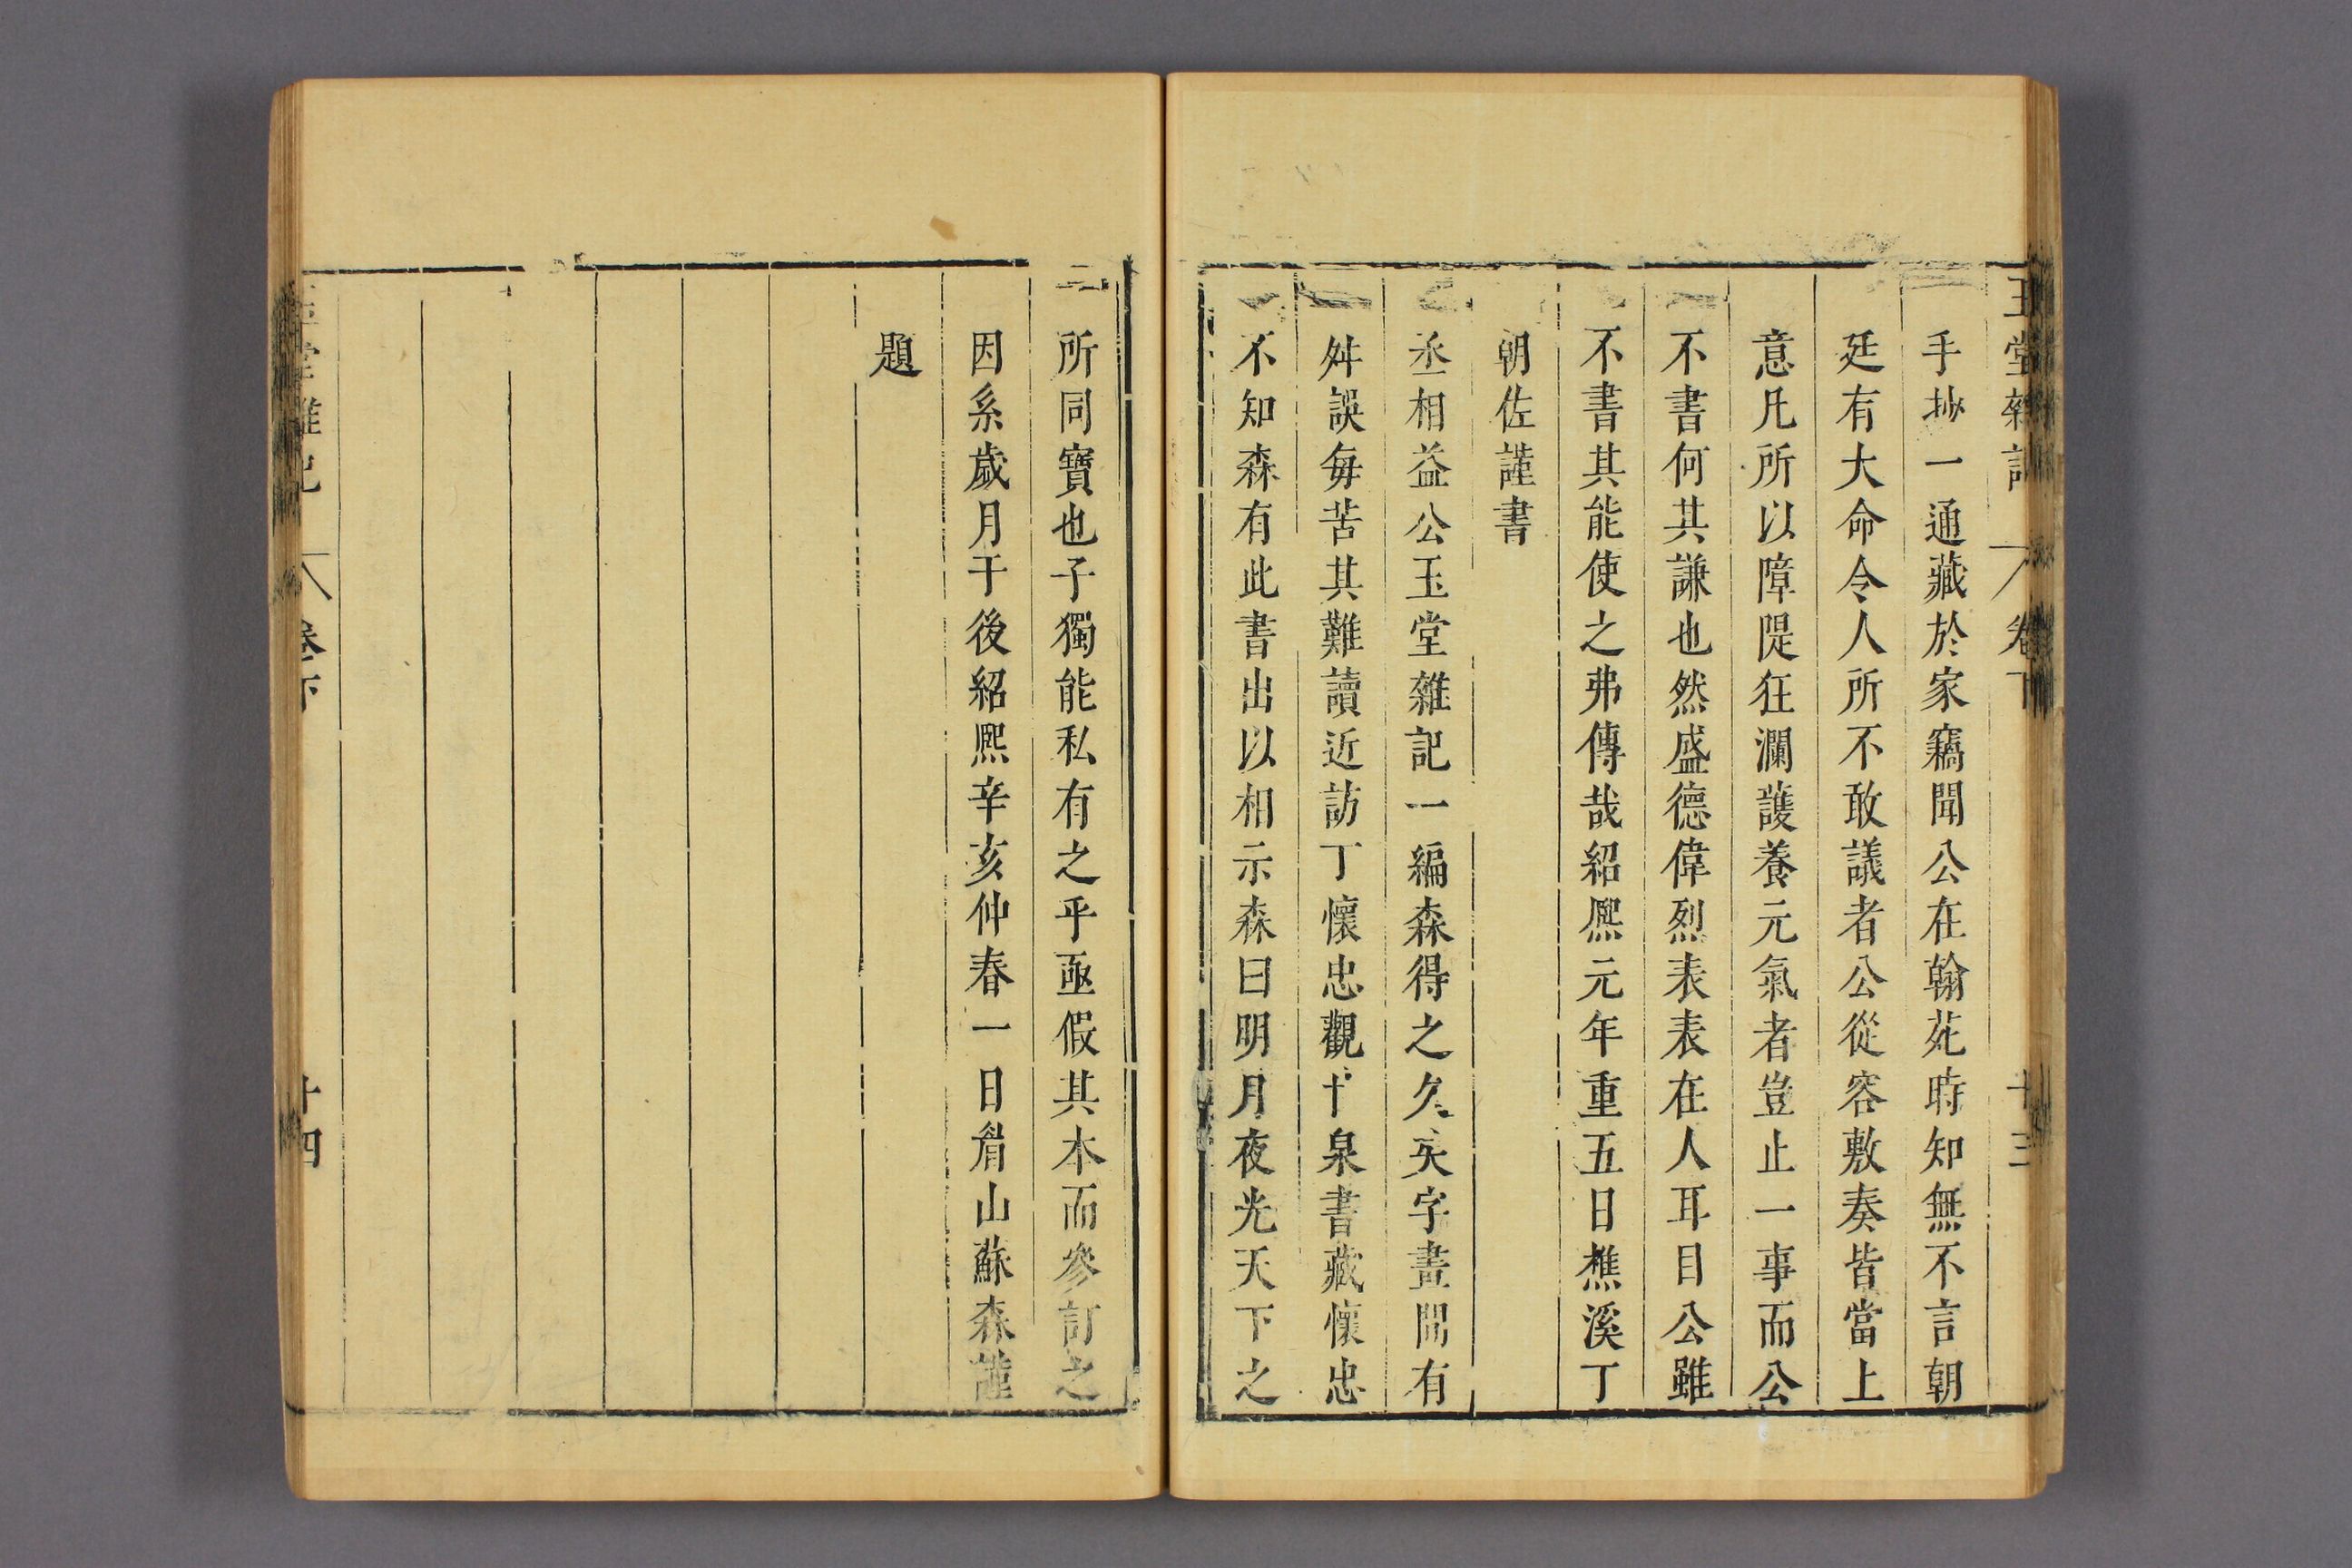 玉堂雜記 卷下 十三
手抄一通藏於家竊聞公在翰苑時知無不言朝
廷有大命令人所不敢議者公從容敷奏皆當上
意凡所以障隄狂瀾護養元氣者豈止一事而公
不書何其謙也然盛德偉烈表表在人耳目公雖
不書其能使之弗傳哉紹熈元年重五日樵溪丁
朝佐謹書
丞相益公玉堂雜記一編森得之久矣字畫間有
舛誤每苦其難讀近訪丁懷忠觀十泉書藏懷忠
不知森有此書出以相示森曰明月夜光天下之
所同寶也子獨能私有之乎亟假其本而參訂之
因系歲月于後紹熈辛亥仲春一日眉山蘇森謹
題
玉堂雜記 卷下 十四